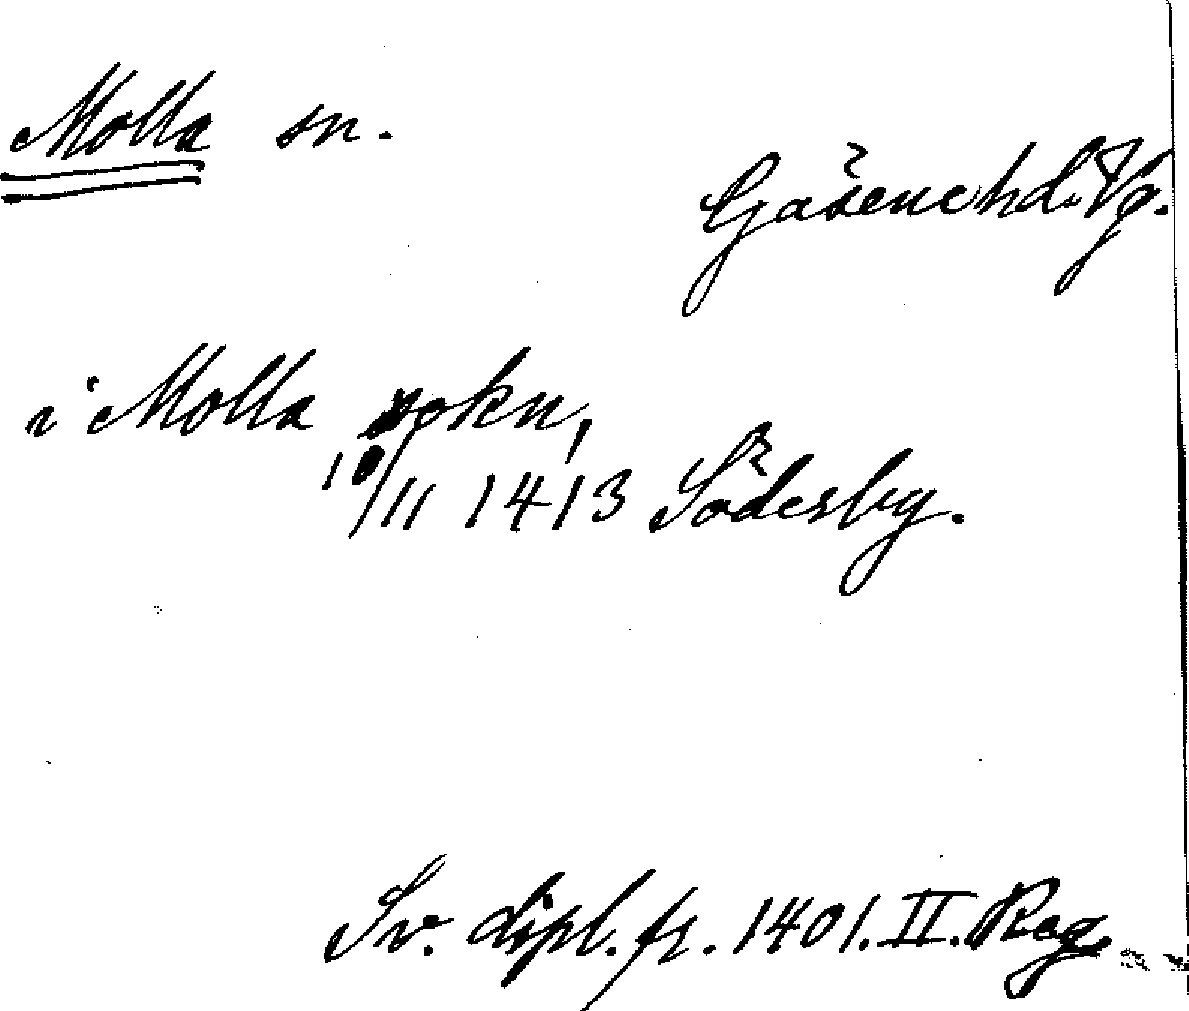 Molla sn.
Gäsene hd. Vg.
i Molla sokn,
10/11 1413 Söderby.
Sv. dipl. fr. 1401. II. Reg.